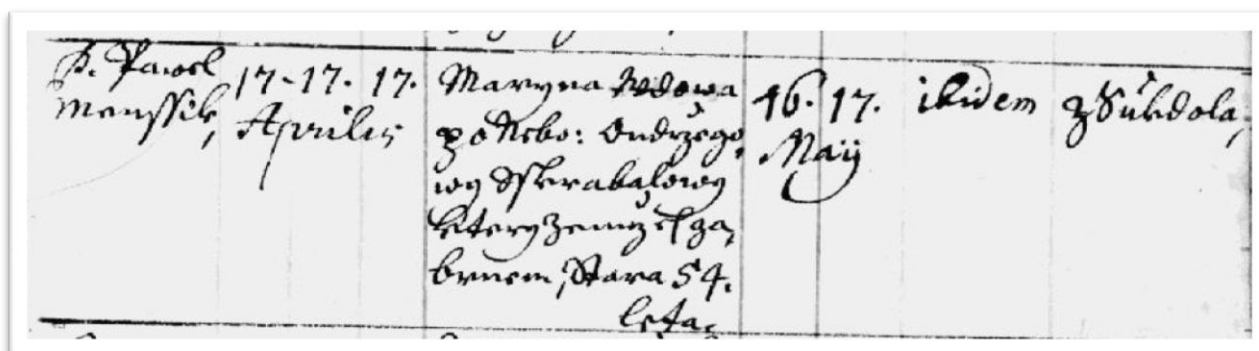 P. Pawel
Menssik,
17. 17. 17.
Aprilis
Maryna Wdowa
po Nebo: Ondrzego
wy Sskrabalowy
ktery Zemrzel za
brnem, Stara 54.
leta.
16. 17.
Maÿ
ibidem
z Suchdola,